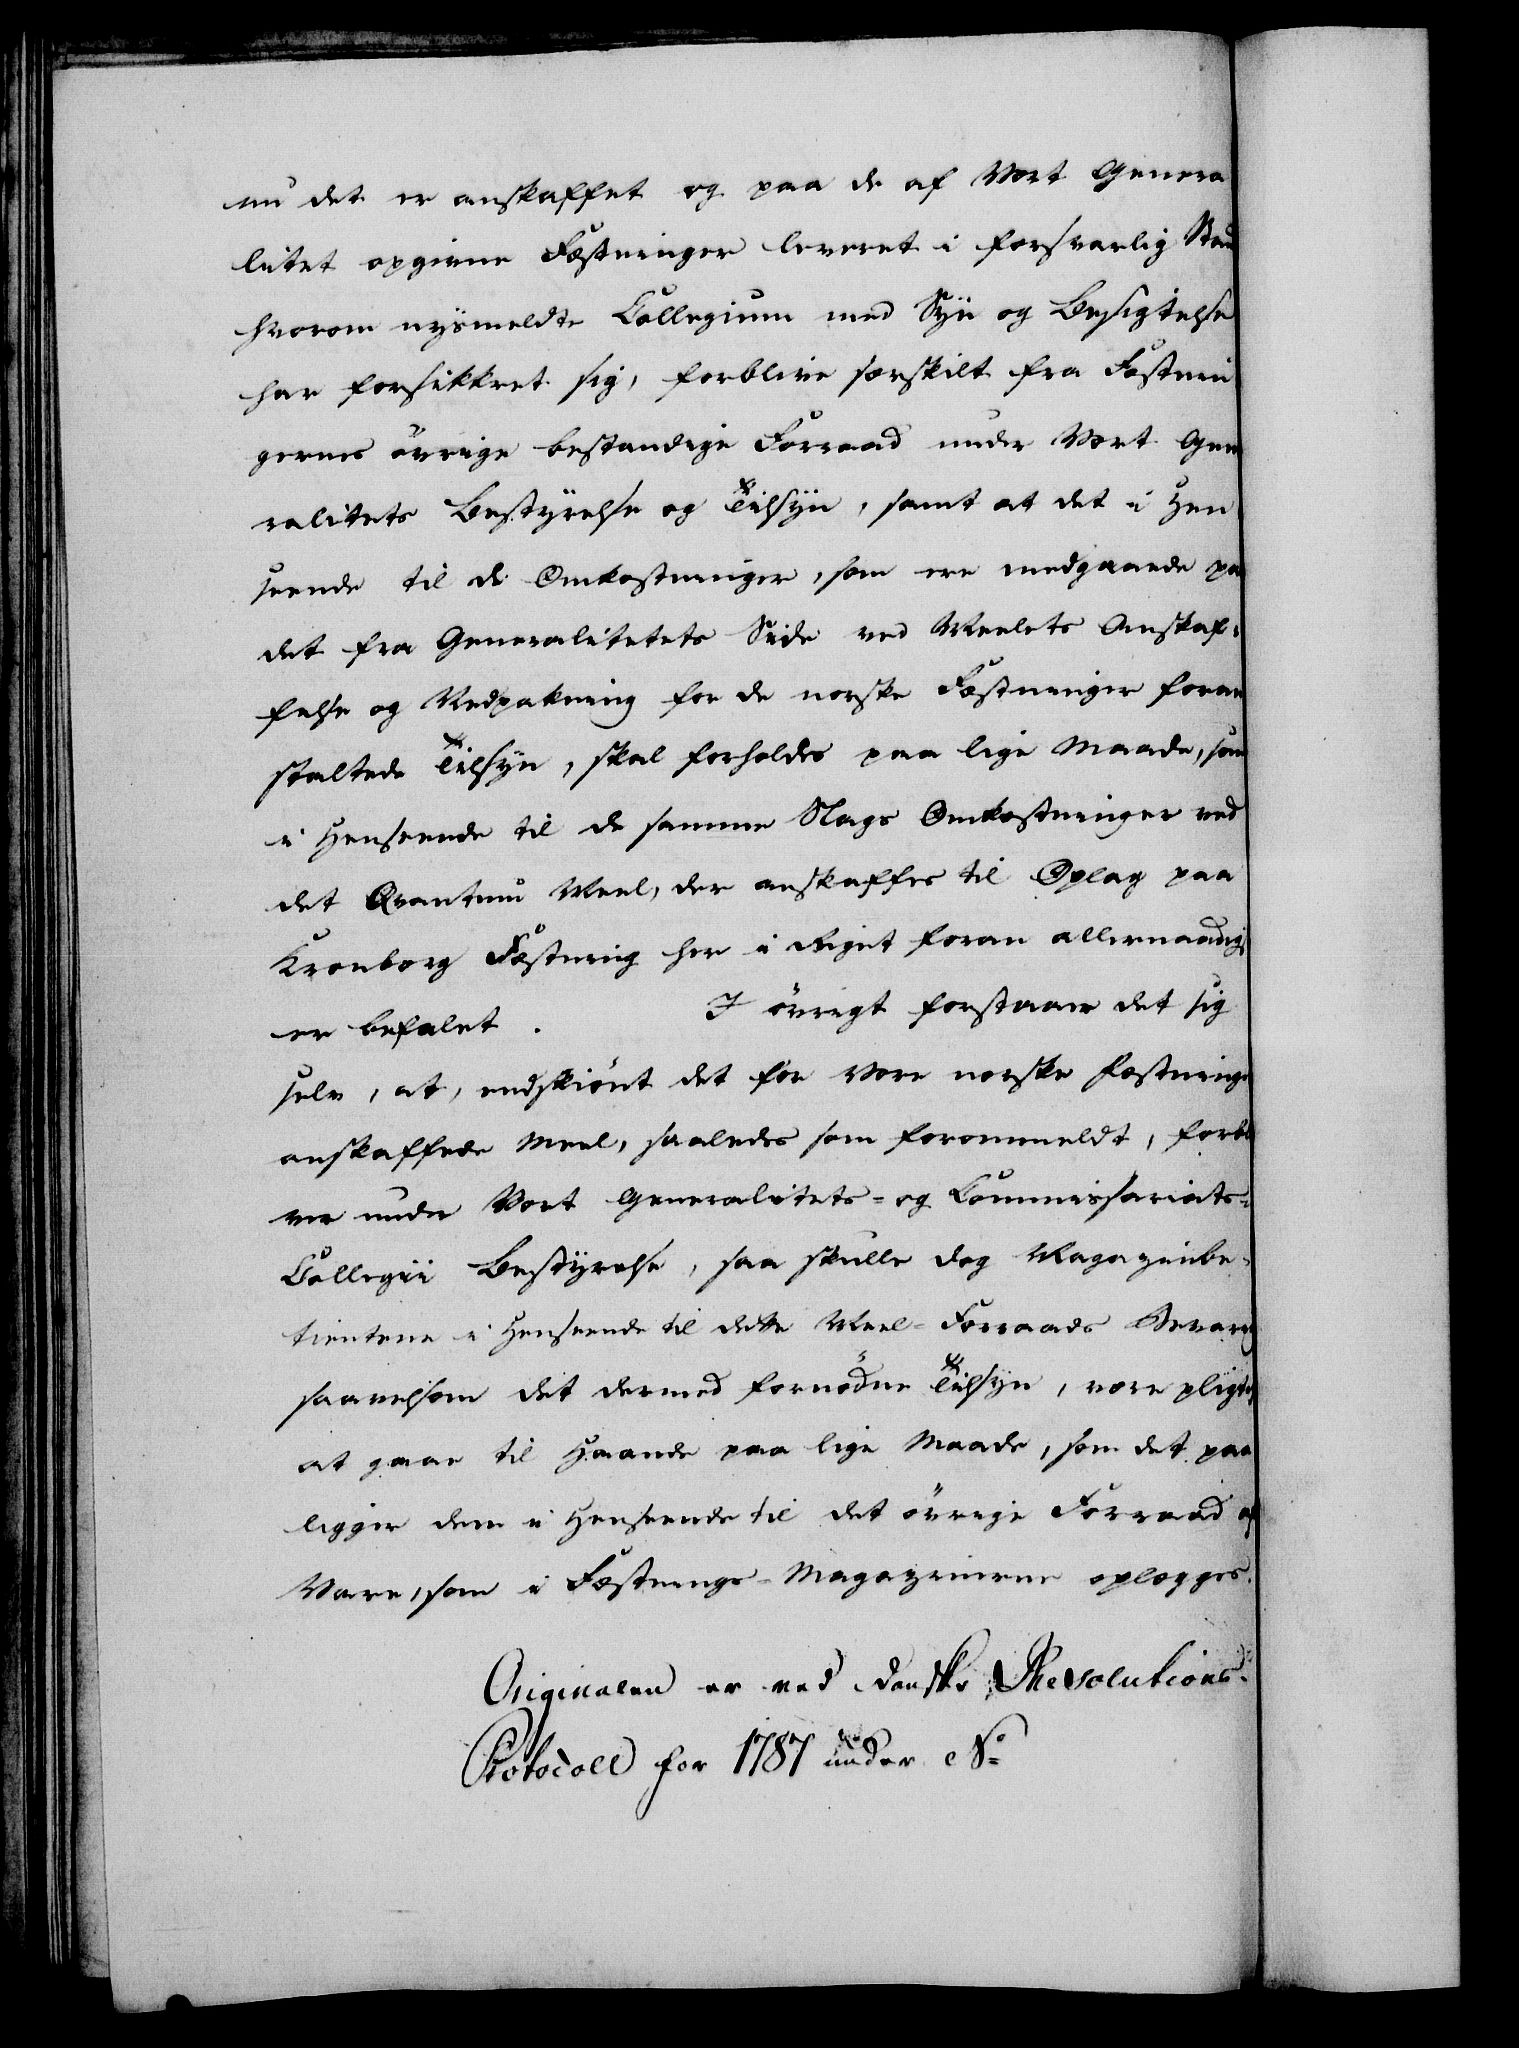 nu det er anskaffet og paa de af Vort Genera
litet opgivne Fæstninger leveret i forsvarlig Stand
hvorom nysmeldte Collegium med Syn og Besigtelse
har forsikkret sig, forblive særskilt fra Fæstnin
gernes övrige bestandige Forraad under Vort Gene
ralitets Bestyrelse og Tilsyn, samt at det i Hen
seende til de Omkostninger, som ere medgaaede paa
det fra Generalitetets Side ved Meelets Anskaf-
felse og Nedpakning for de norske Fæstninger foran
staltede Tilsyn, skal forholdes paa lige Maade, som
i Henseende til de samme Slags Omkostninger ved
det Qvantum Meel, der anskaffes til Oplag paa
Kronborg Fæstning her i Riget foran allernaadigst
er befalet. I övrigt forstaaer det sig
selv, at, endskiönt det for Vore norske Fæstninger
anskaffede Meel, saaledes som forommeldt, forbli
ver under Vort Generalitets- og Commissariats-
Collegii Bestyrelse, saa skulle dog Magazinbe-
tientene i Henseende til dette Meel-Forraads Bevaring
saavelsom det dermed fornödne Tilsyn, være pligtige
at gaae til Haande paa lige Maade, som det paa
ligger dem i Henseende til det övrige Forraad af
Vare, som i Fæstnings-Magazinerne oplægges.
Originalen er ved danske Resolutions-
Protocoll for 1787 under No